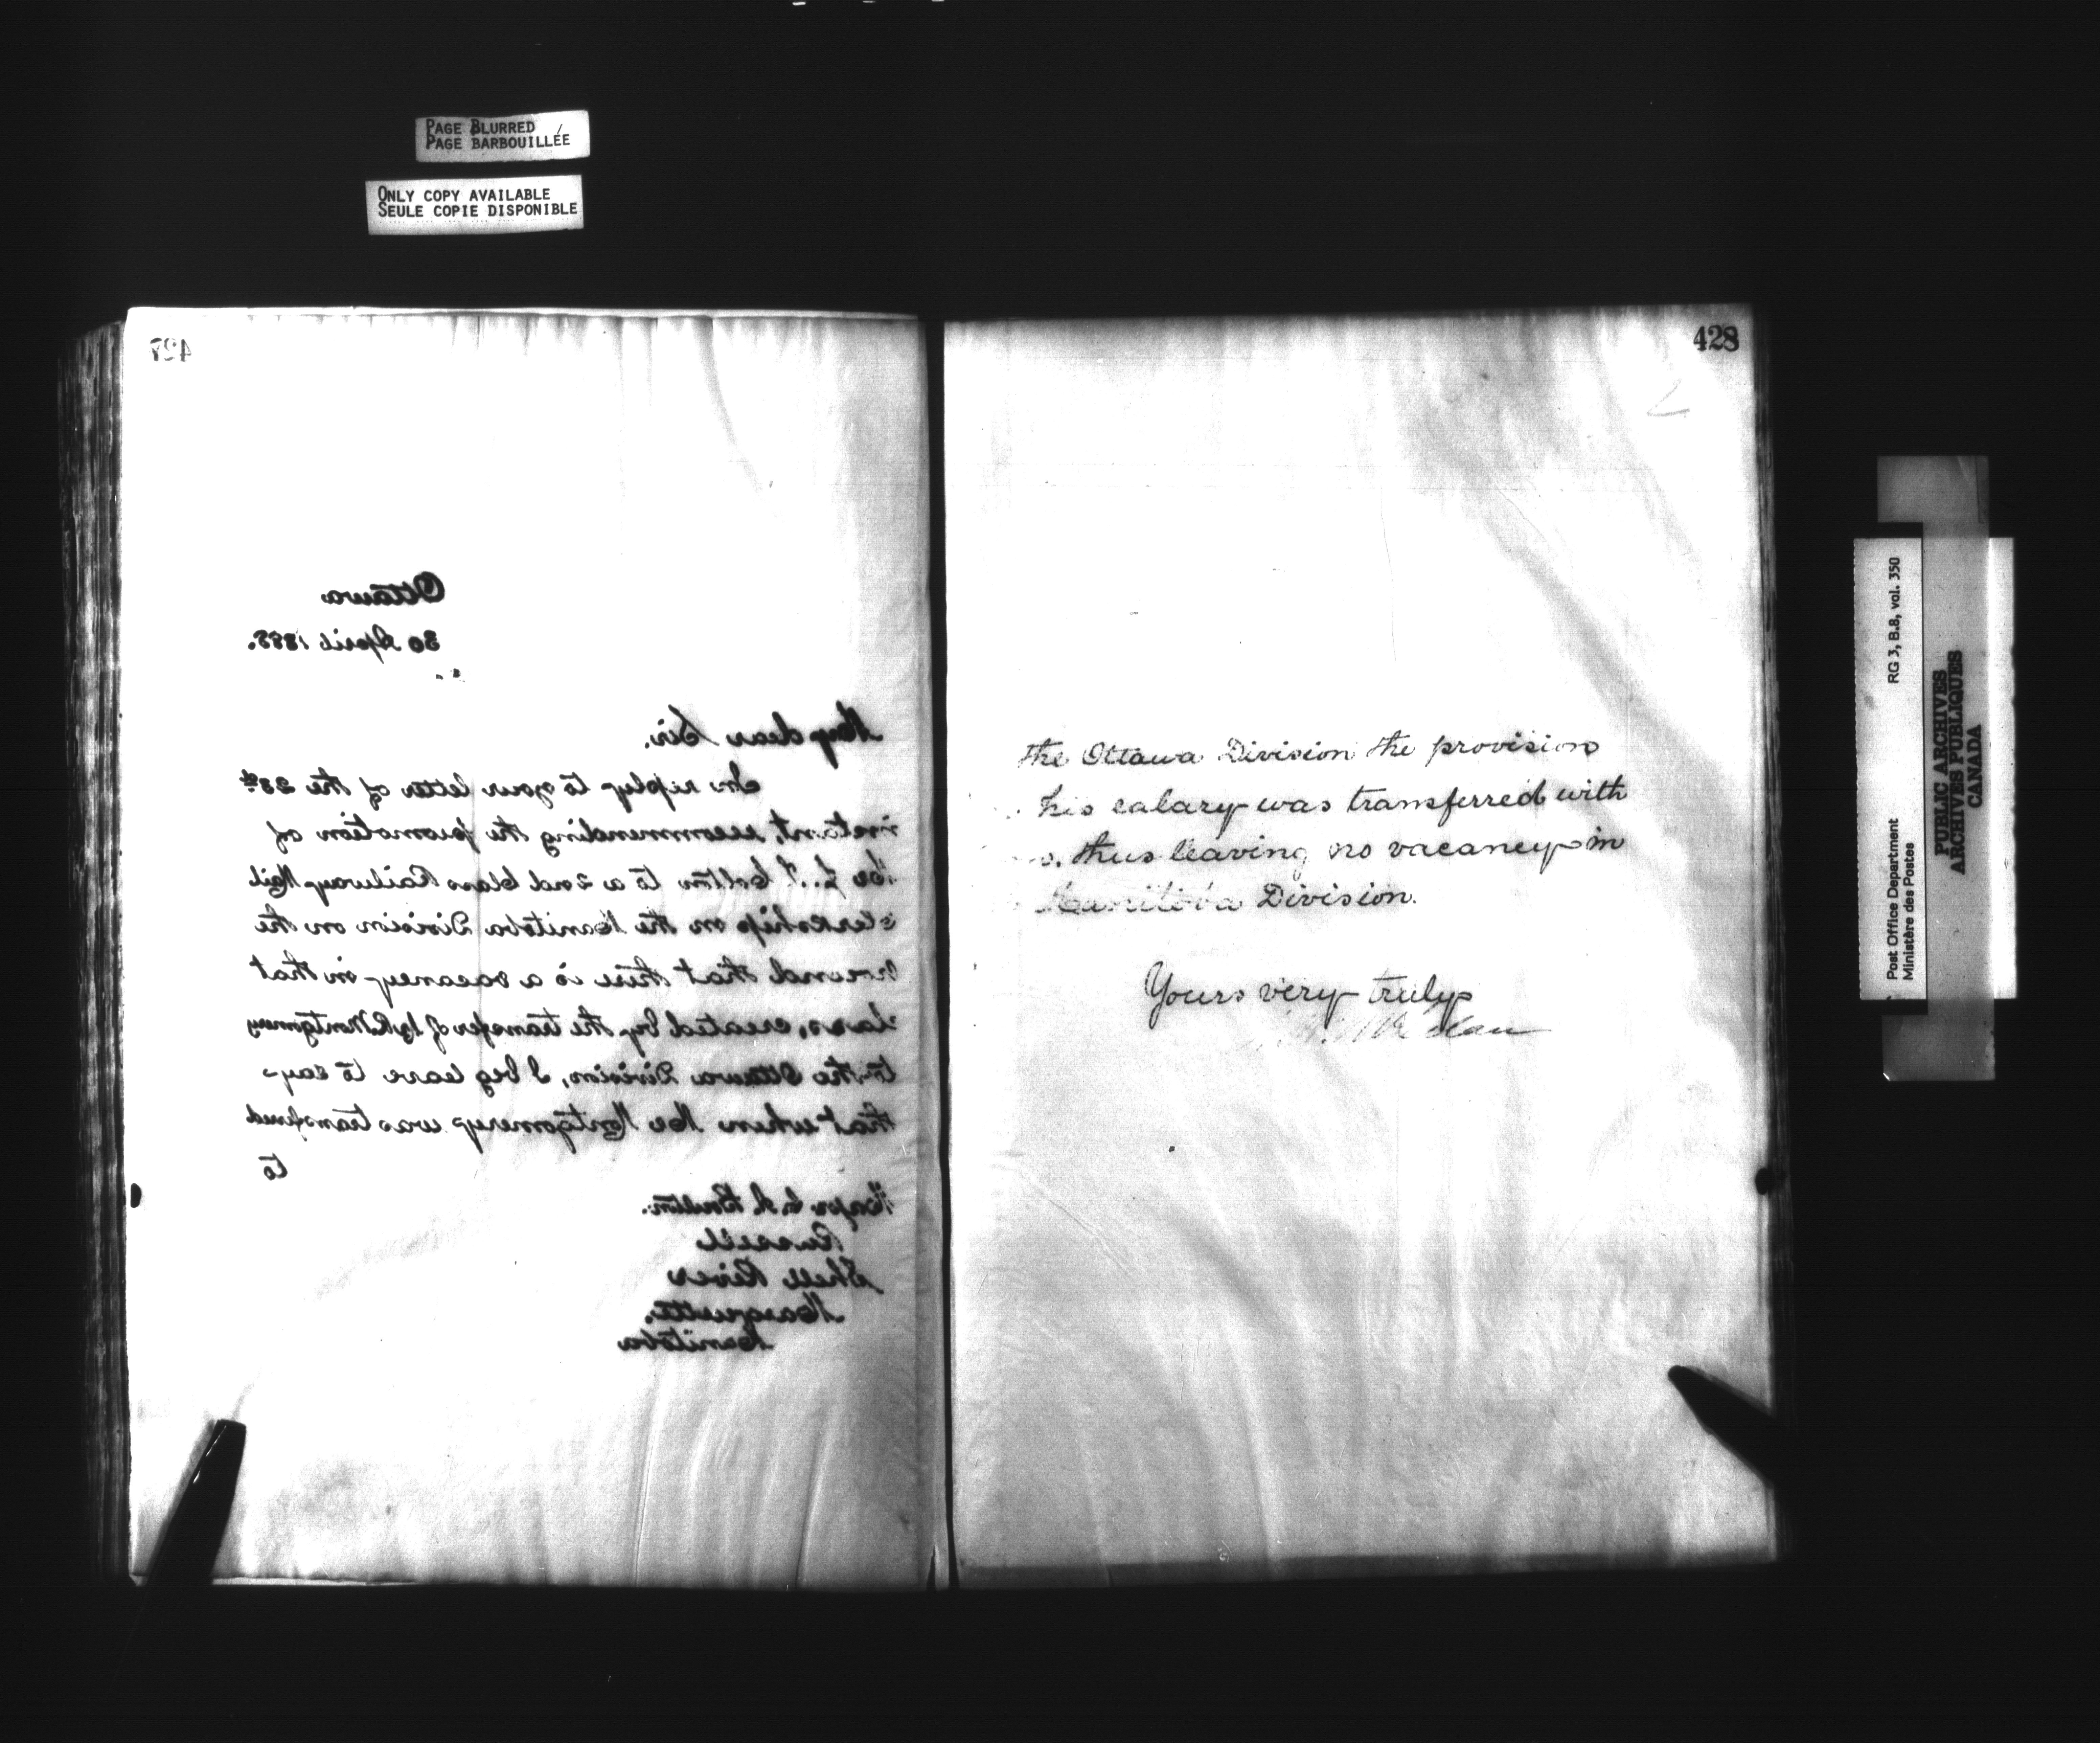 PAGE BLURRED
PAGE BARBOUILLÉE
ONLY COPY AVAILABLE
SEULE COPIE DISPONIBLE
427
Ottawa
30 April 1888.
My dear Sir.
In reply to your letter of the 23rd
instant, recommending the promotion of
Mr L. J. Colton to a 2nd Class Railway Mail
Clerkship on the Manitoba Division on the
ground that there is a vacancy in that
class, created by the transfer of Montgomery
to the Ottawa Division, I beg leave to say
that when Mr Montgomery was transferred
to
Major C. A. Boulton.
Russell
Shell River
Marquette.
Manitoba
428
the Ottawa Division the provision
his salary was transferred with
thus leaving no vacancy in
Manitoba Division.
Yours very truly
Post Office Department RG 3, B.8, vol. 350
Ministère des Postes
PUBLIC ARCHIVES
ARCHIVES PUBLIQUES
CANADA